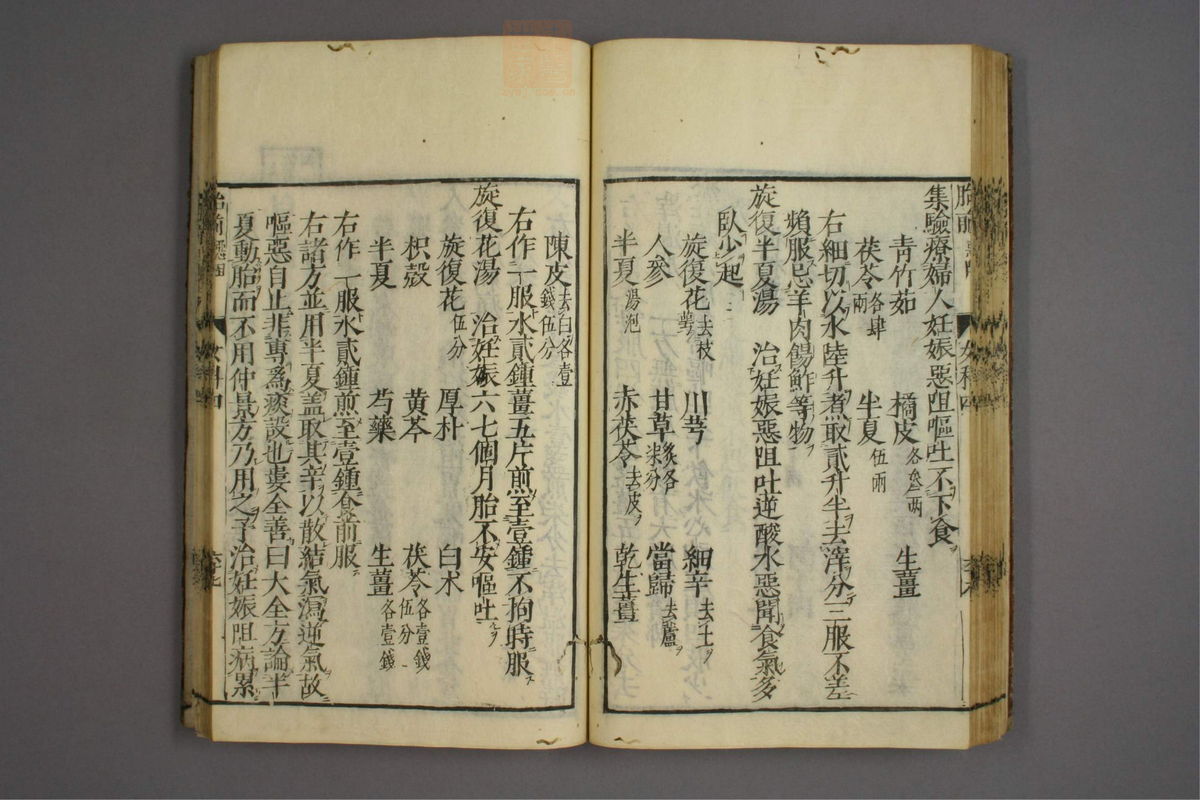 集驗療婦人妊娠惡阻嘔吐不下食
青竹茹 橘皮各叄兩 生薑
茯苓各肆兩 半夏伍兩
右細切以水陸升煮取貳升半去滓分三服不差
頻服忌羊肉餳鮓等物
旋復半夏湯 治妊娠惡阻吐逆酸水惡聞食氣多
臥少起
旋復花去枝萼 川芎 細辛去土
人參 甘草炙各柒分 當歸去蘆
半夏湯泡 赤茯苓去皮 乾生薑
陳皮去白各壹錢伍分
右作一服水貳鍾薑五片煎至壹鍾不拘時服
旋復花湯 治妊娠六七個月胎不安嘔吐
旋復花伍分 厚朴 白术
枳殼 黄芩 茯苓各壹錢伍分
半夏 芍藥 生薑各壹錢
右作一服水貳鍾煎至壹鍾食前服
右諸方並用半夏蓋取其辛以散結氣瀉逆氣故
嘔惡自止非專爲痰設也婁全善曰大全方論半
夏動胎而不用仲景方乃用之予治妊娠阻病累